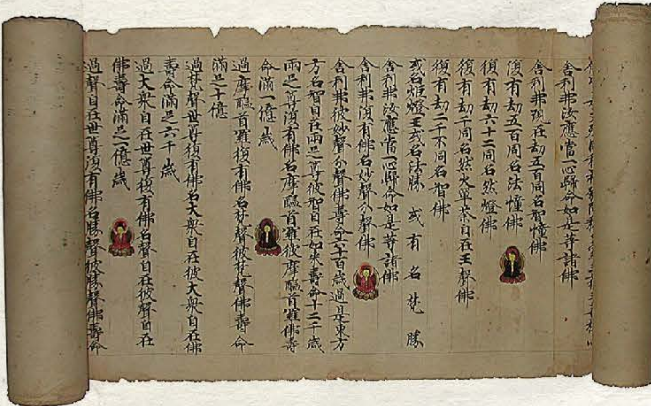 舍利弗汝應當一心歸命如是等諸佛
舍利弗現在劫五百同名智幢佛
復有劫五百同名法幢佛
復有劫六十二同名然燈佛
復有劫千同名然火單荼自在王聲佛
復有劫二千不同名智佛
或名炬燈王或名法勝 或有名梵勝
舍利弗汝應當一心歸命如是等諸佛
舍利弗復有佛名妙聲分聲佛
舍利弗彼妙聲分聲佛壽命六十百歲過是東方
名智自在兩足尊彼智自在如來壽命十二千歲
兩足尊復有佛名摩醯首羅彼摩醯首羅佛壽
命滿一億歲
過摩醯首羅復有佛名梵聲彼梵聲佛壽命
滿足十億
過梵聲世尊復有佛名大衆自在彼大衆自在佛
壽命滿足六千歲
過大衆自在世尊復有佛名聲自在彼聲自在
佛壽命滿足一億歲
過聲自在世尊復有佛名勝聲彼勝聲佛壽命